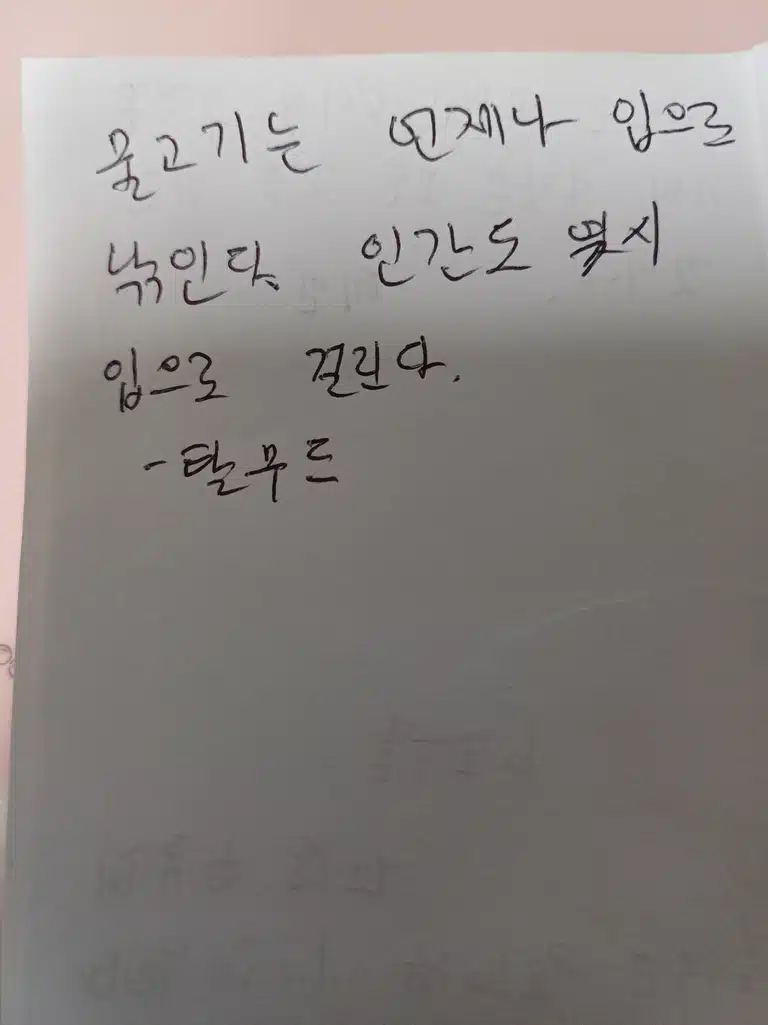 물고기는 언제나 입으로
낚인다. 인간도 역시
입으로 걸린다.
-탈무드